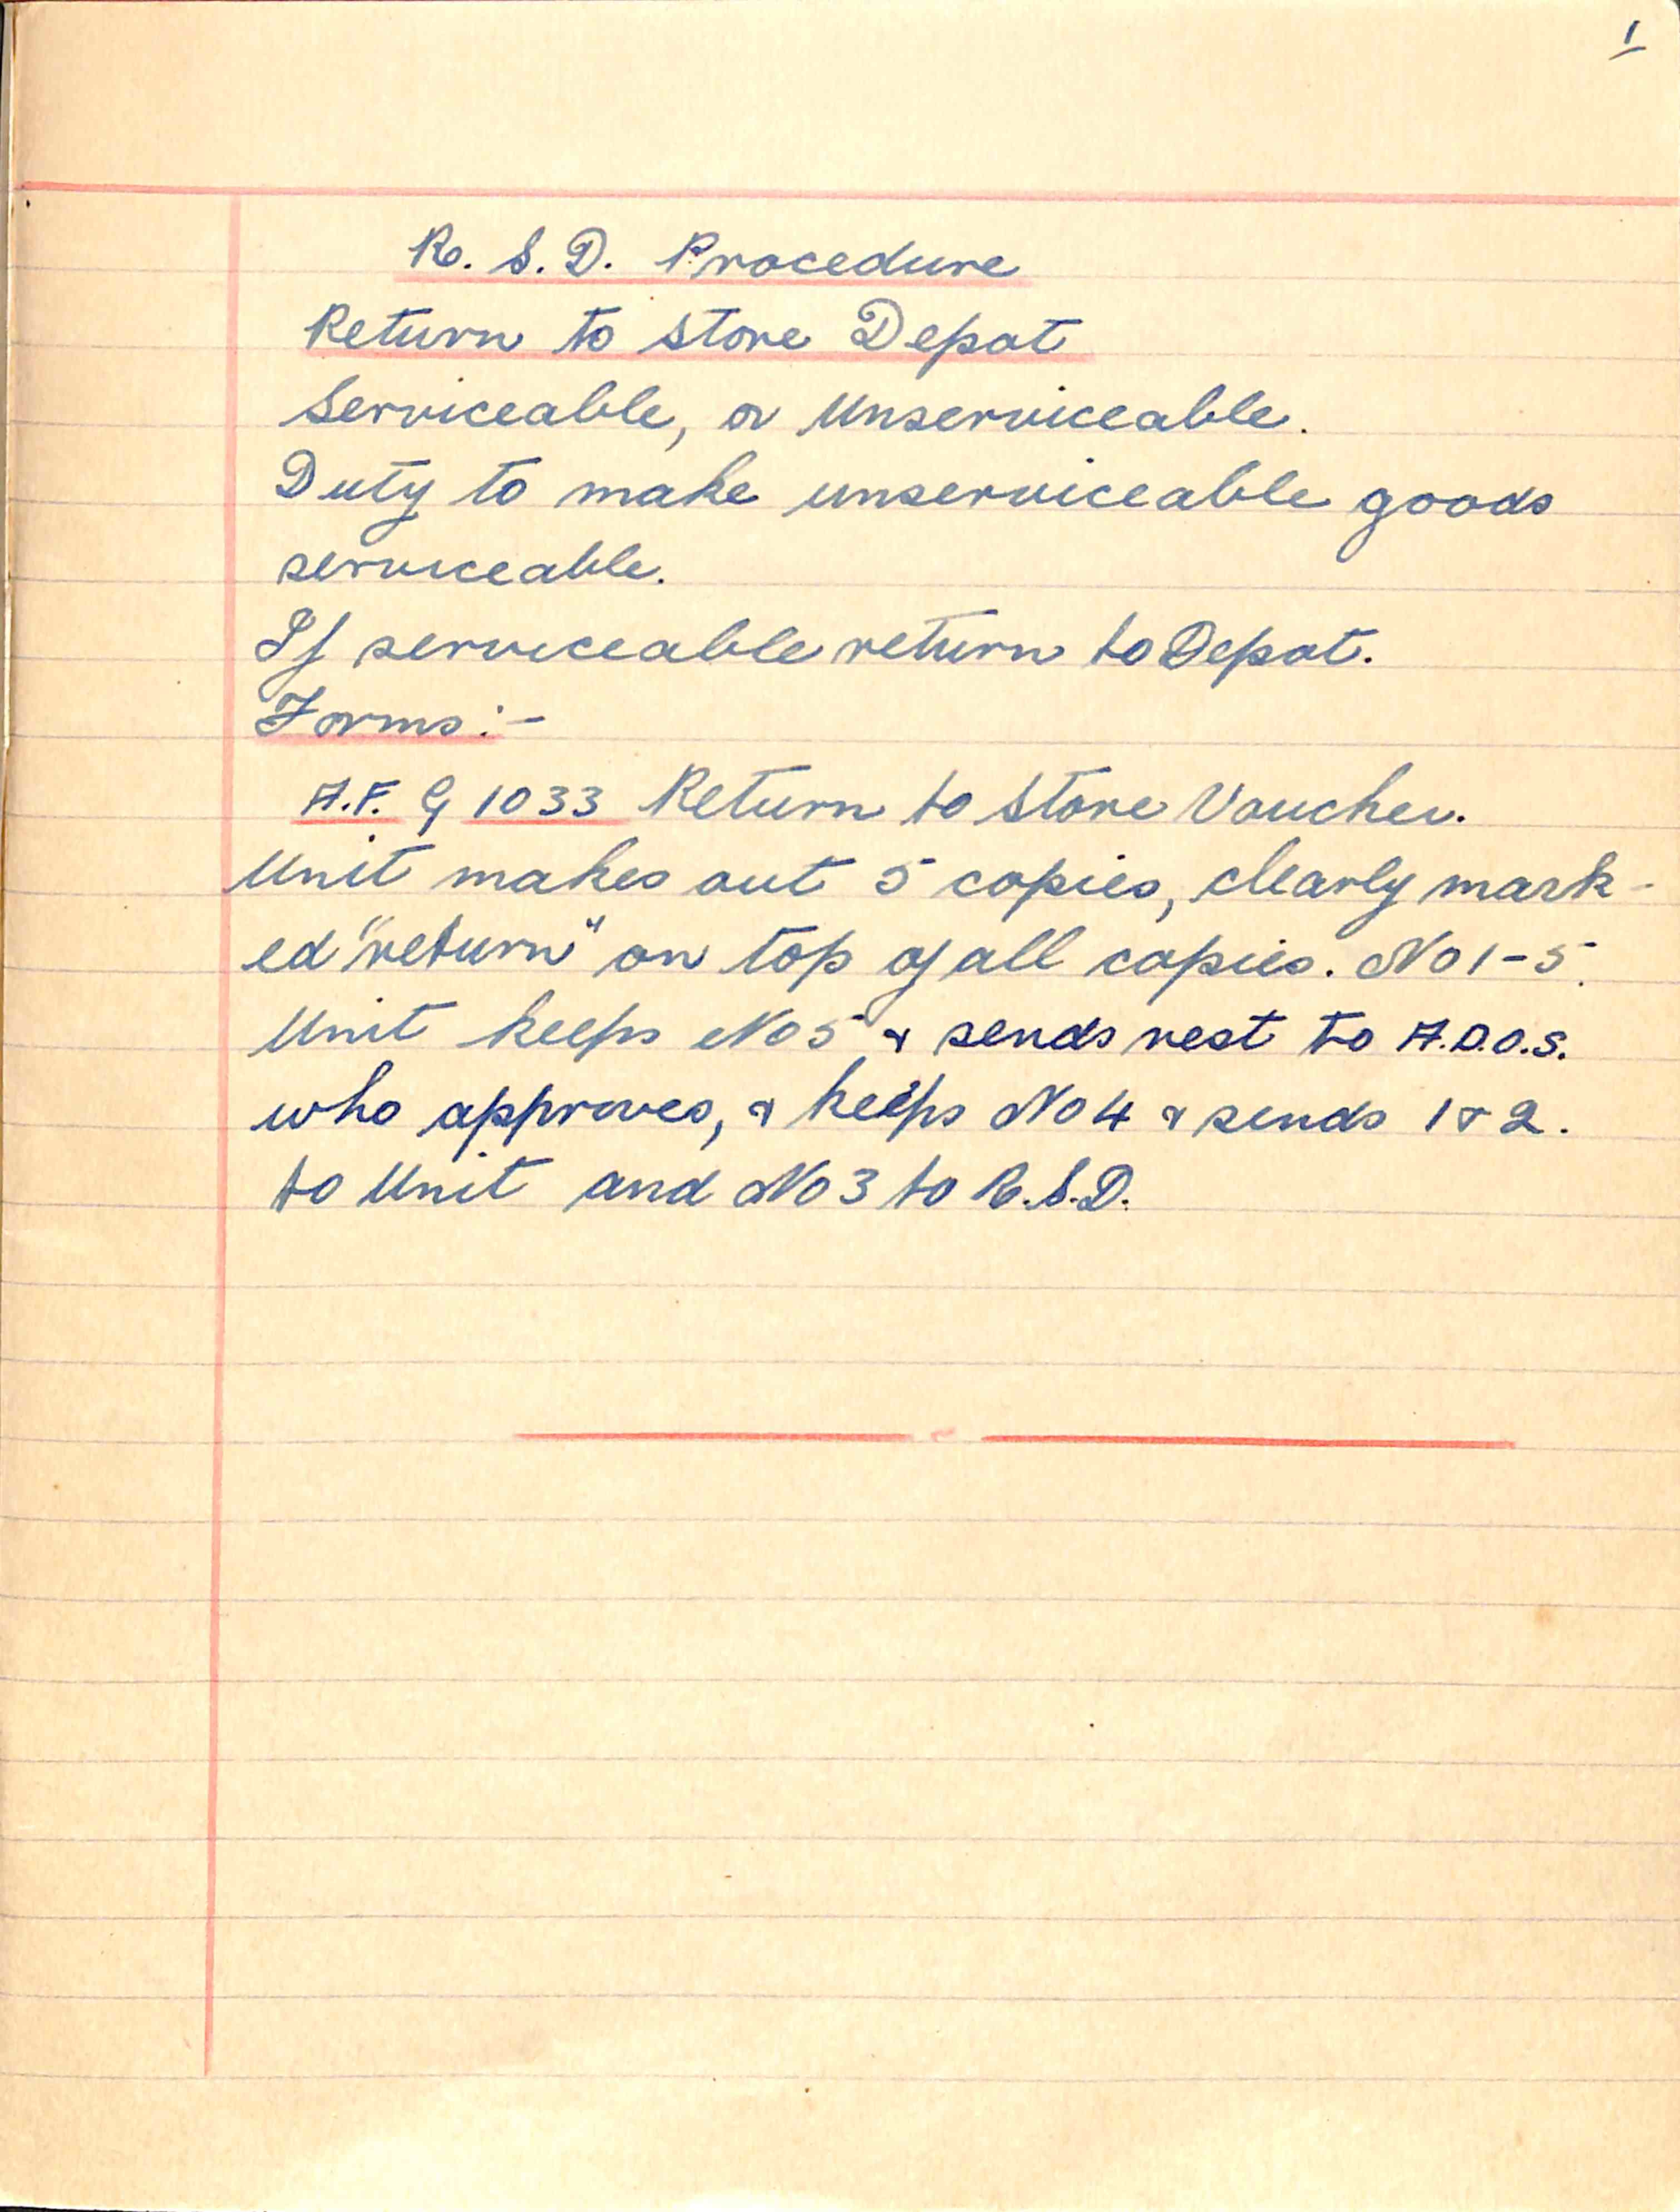 1
R. S. D. Procedure
Return to Store Depot
Serviceable, or Unserviceable.
Duty to make unserviceable goods
serviceable.
If serviceable return to Depot.
Forms:-
A.F. G 1033 Return to Store Voucher.
Unit makes out 5 copies, clearly mark-
ed "return" on top of all copies. No 1-5.
Unit keeps No 5 & sends rest to A.D.O.S.
who approves, & keeps No 4 & sends 1 & 2.
to Unit and No 3 to R.S.D.